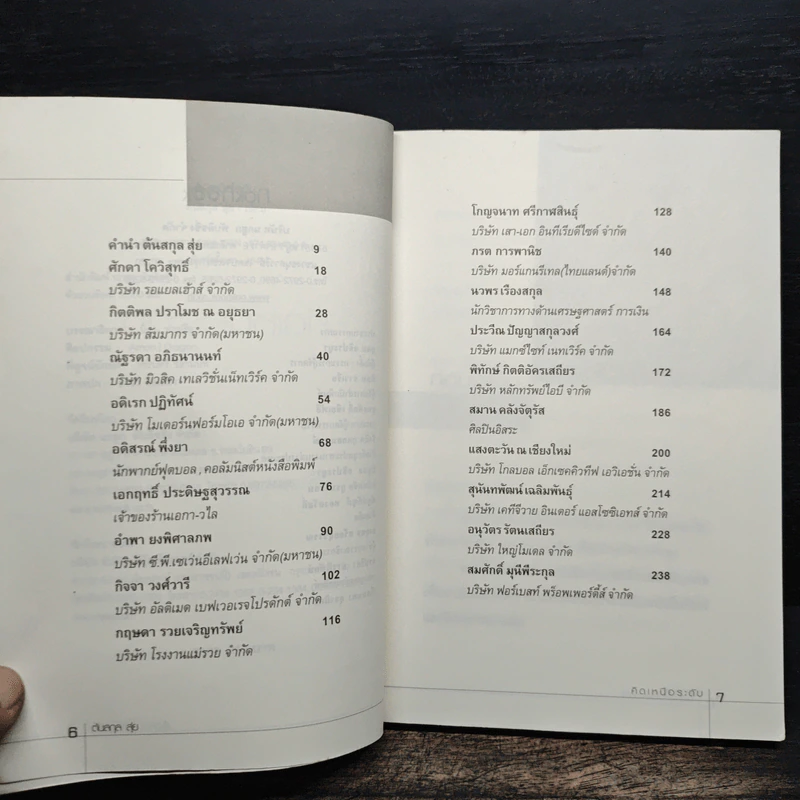 คำนำ ตันสกุล สุ่ย 9
ศักดา โควิสุทธิ์ 18
บริษัท รอแยลเฮ้าส์ จำกัด
กิตติพล ปราโมช ณ อยุธยา 28
บริษัท สัมมากร จำกัด(มหาชน)
ณัฐรดา อภิธนานนท์ 40
บริษัท มิวสิค เทเลวิชั่นเน็ทเวิร์ค จำกัด
อดิเรก ปฏิทัศน์ 54
บริษัท โมเดอร์นฟอร์มโอเอ จำกัด(มหาชน)
อดิสรณ์ พึ่งยา 68
นักพากย์ฟุตบอล , คอลัมนิสต์หนังสือพิมพ์
เอกฤทธิ์ ประดิษฐสุวรรณ 76
เจ้าของร้านเอกา-วไล
อำพา ยงพิศาลภพ 90
บริษัท ซี.พี.เซเว่นอีเลฟเว่น จำกัด(มหาชน)
กิจจา วงศ์วารี 102
บริษัท อัลติเมด เบฟเวอเรจโปรดักต์ จำกัด
กฤษดา รวยเจริญทรัพย์ 116
บริษัท โรงงานแม่รวย จำกัด
6 ตันสกุล สุ่ย
โกญจนาท ศรีกาฬสินธุ์ 128
บริษัท เสา-เอก อินทีเรียดีไซด์ จำกัด
ภรต การพานิช 140
บริษัท มอร์แกนรีเทล(ไทยแลนด์)จำกัด
นวพร เรืองสกุล 148
นักวิชาการทางด้านเศรษฐศาสตร์ การเงิน
ประวีณ ปัญญาสกุลวงศ์ 164
บริษัท แมกซ์ไซท์ เนทเวิร์ค จำกัด
พิทักษ์ กิตติอัครเสถียร 172
บริษัท หลักทรัพย์ไอบี จำกัด
สมาน คลังจัตุรัส 186
ศิลปินอิสระ
แสงตะวัน ณ เชียงใหม่ 200
บริษัท โกลบอล เอ็กเซคคิวทีฟ เอวิเอชั่น จำกัด
สุนันทพัฒน์ เฉลิมพันธุ์ 214
บริษัท เคทีจีวาย อินเตอร์ แอสโซซิเอทส์ จำกัด
อนุวัตร รัตนเสถียร 228
บริษัท ใหญ่โมเดล จำกัด
สมศักดิ์ มุนีพีระกุล 238
บริษัท ฟอร์เบสท์ พร็อพเพอร์ตี้ส์ จำกัด
คิดเหนือระดับ 7